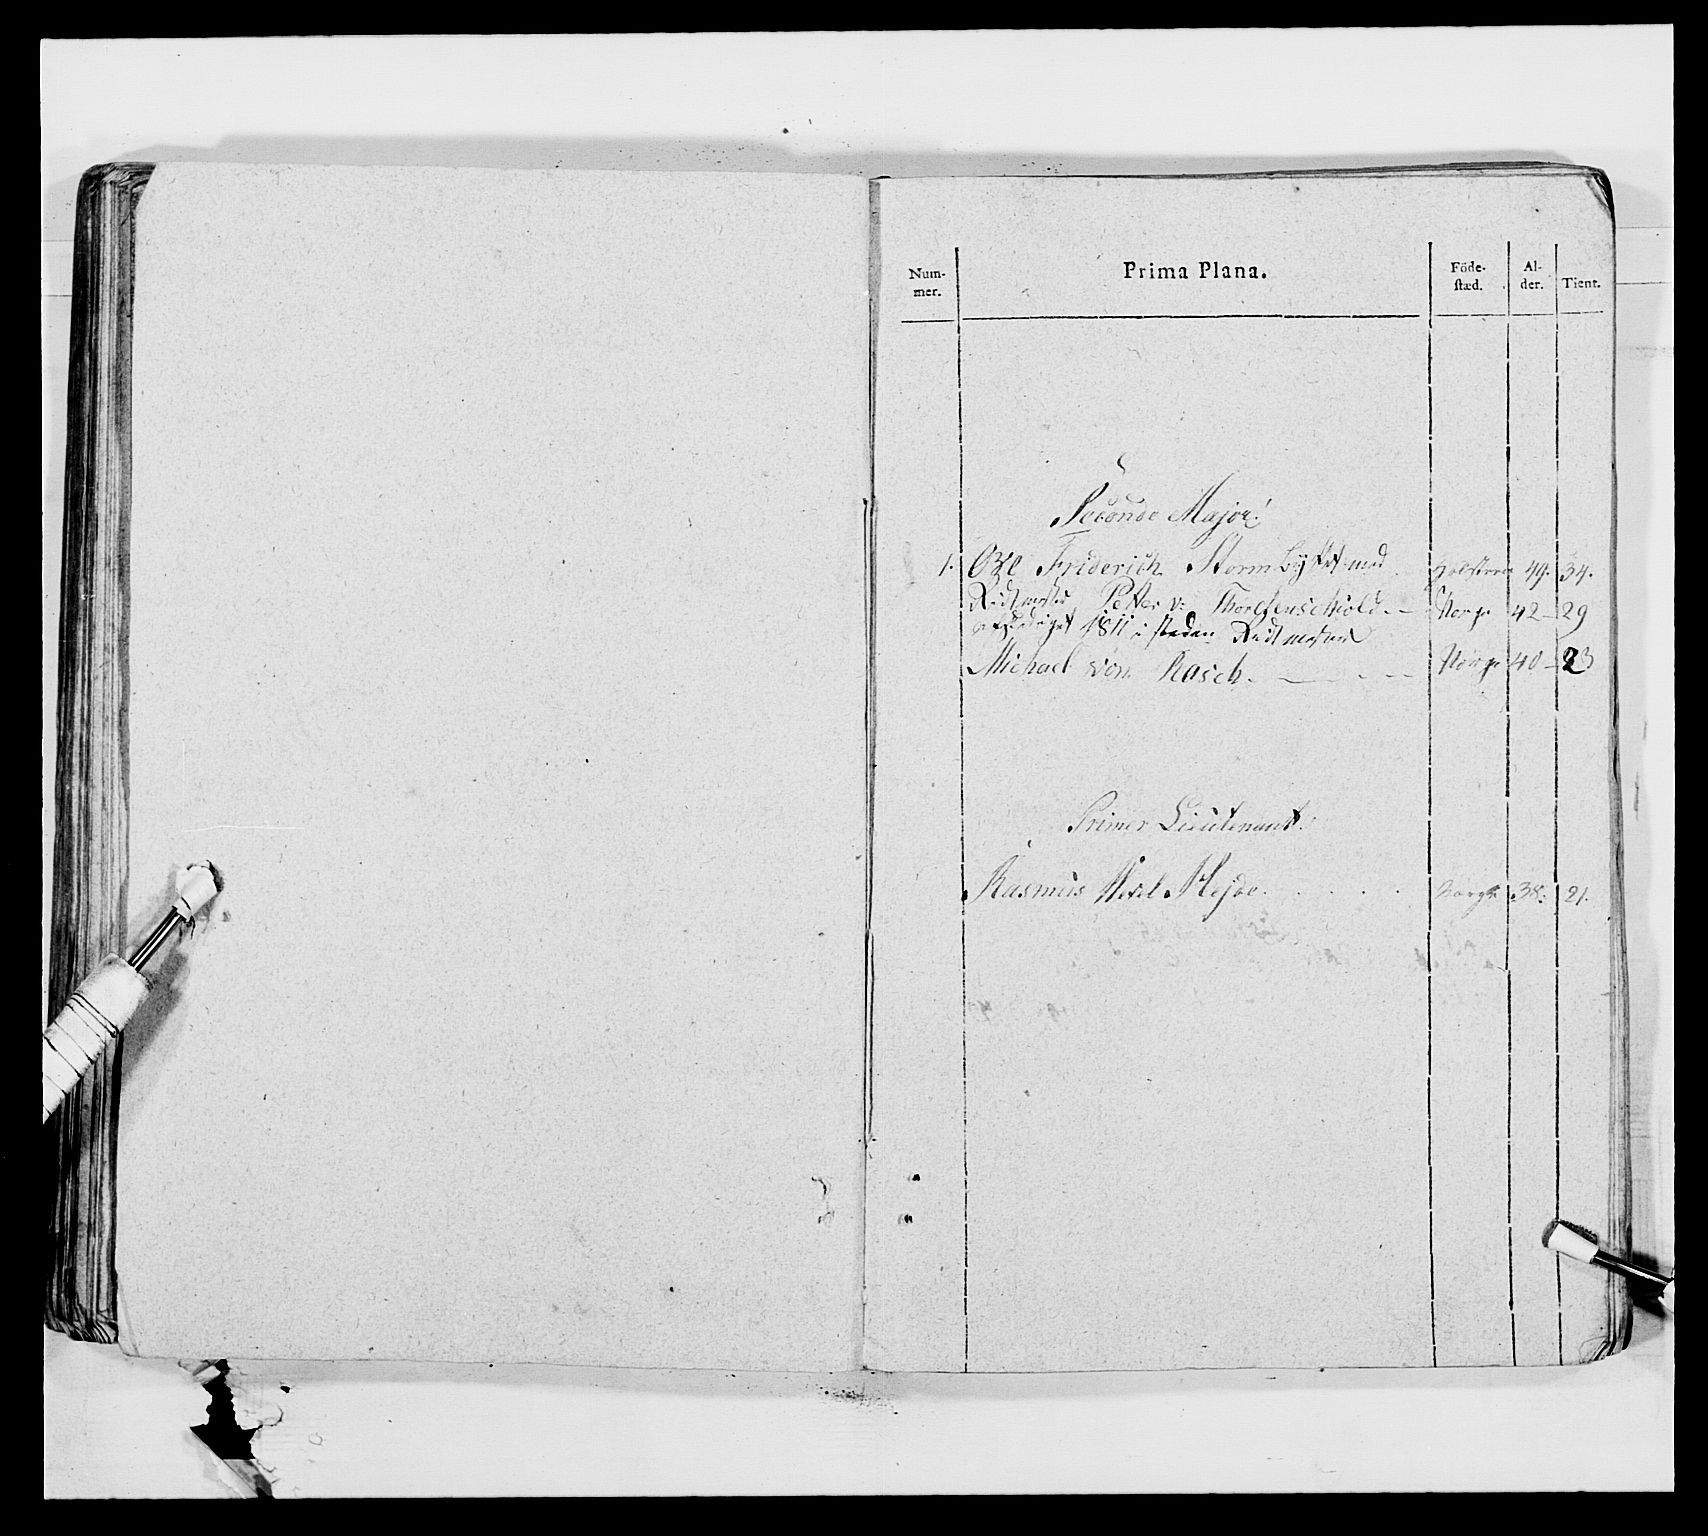 Num-
mer.
Prima Plana.
Föde-
stæd.
Al-
der.
Tient.
Seconde Major.
1. Friderich Storm byttet med 49. 34.
Ridtmester Petter v: Thorc Norge 42 - 29
afskediget 1811 i steden Ridtmester
Michael von Rasch. Norge 40 - 23
Primer Lieutenant.
Rasmus Hejde. Norge 38. 21.